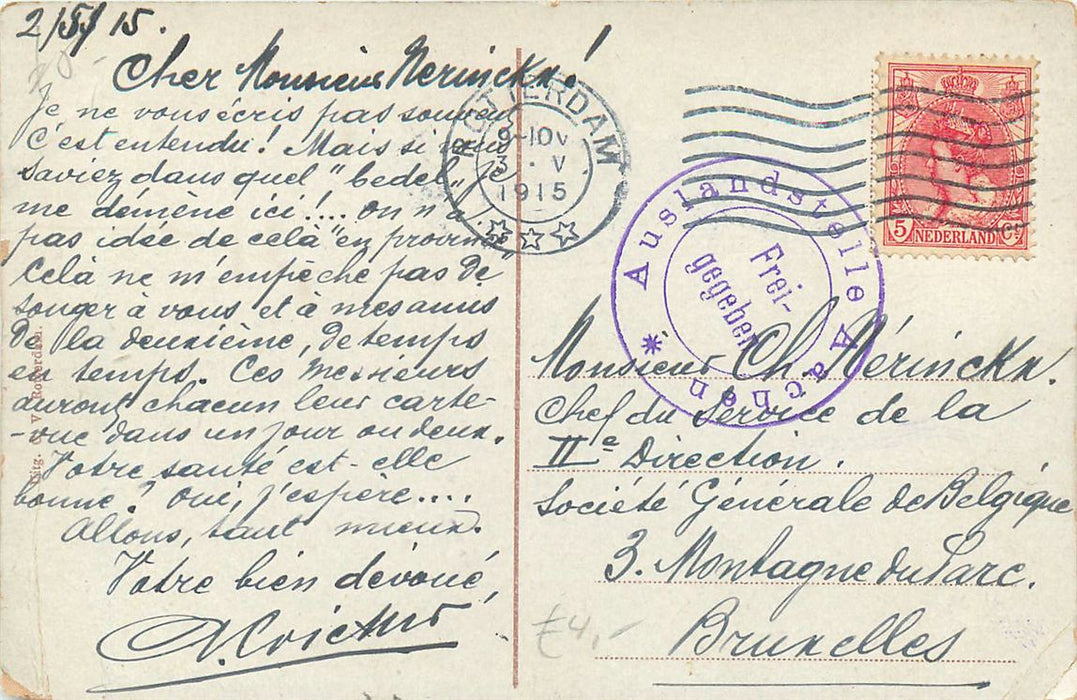 2/5/15.
Cher Monsieur Nerinckx!
Je ne vous écris pas souvent
c'est entendu! Mais si vous
saviez dans quel "bedel" je
me démène ici!... on n'a
pas idée de celà "en province
Celà ne m'empêche pas de
songer à vous et à mes amis
de la deuxième, de temps
en temps. Ces Messieurs
auront chacun leur carte-
-vue dans un jour ou deux.
Votre santé est-elle
bonne? Oui, j'espère....
Allons, tant mieux.
Votre bien dévoué,
Uitg. V. Rotterdam.
ROTTERDAM
9-10V
3 . V
1915
Auslandstelle Aachen
Frei-
gegeben
5 NEDERLAND Ct
Monsieur Ch. Nérinckx.
Chef du Service de la
IIe Direction.
Société Générale de Belgique
3. Montagne du Parc.
Bruxelles
£4,-